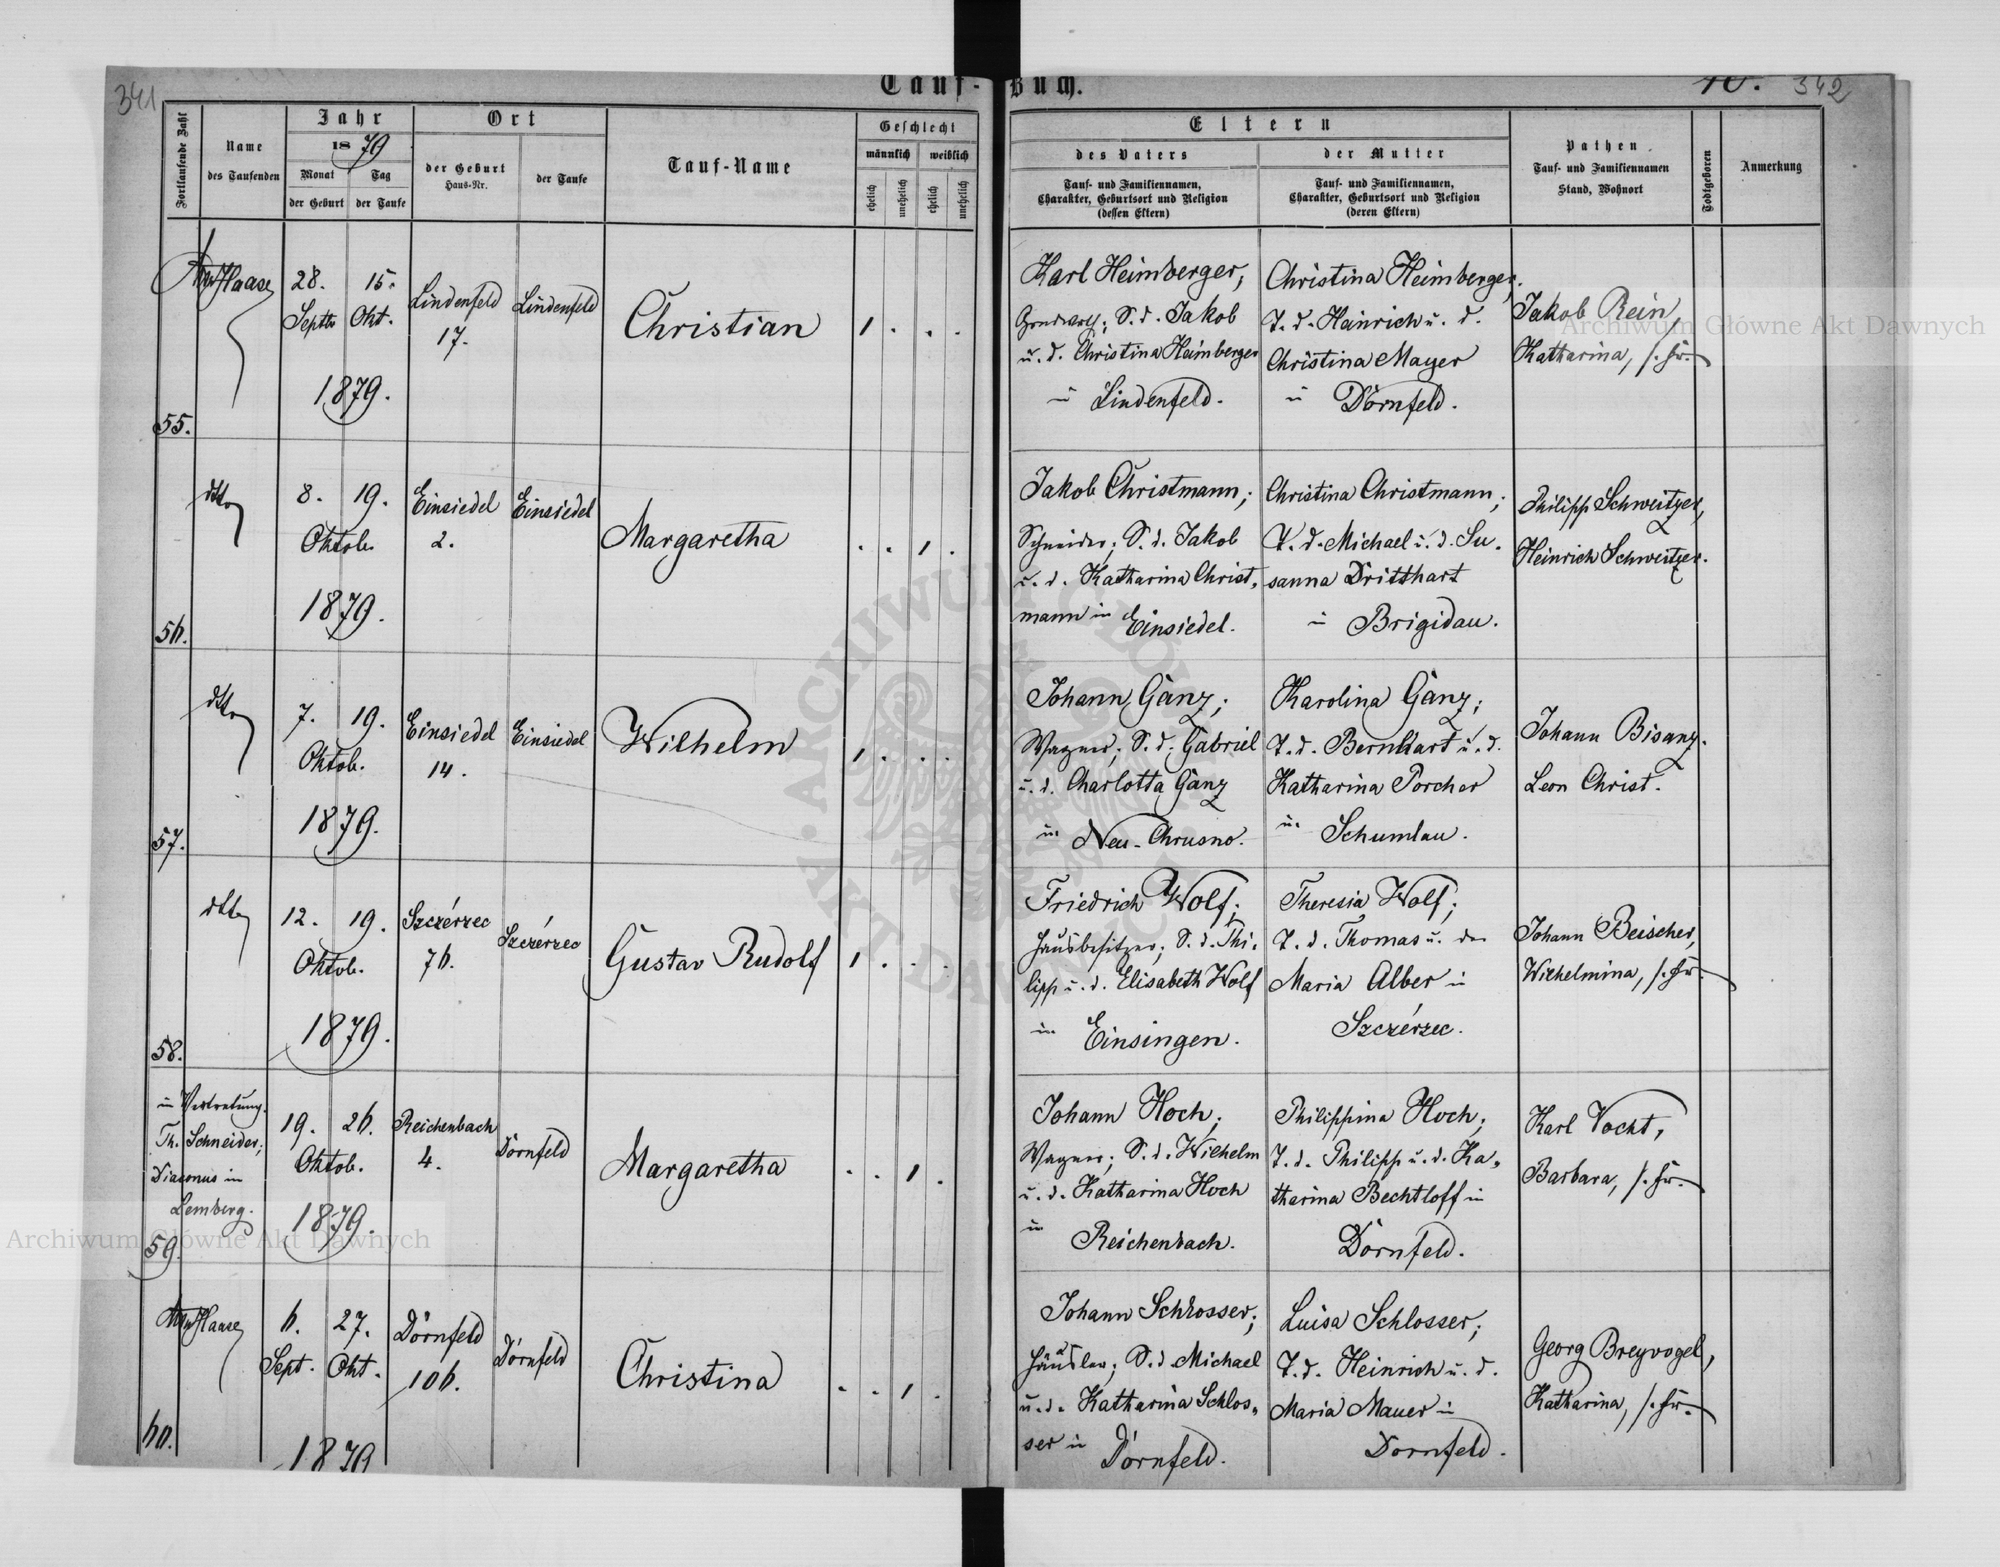 341
Tauf-Buch.
10.
342
Fortlaufende Zahl
Name
des Taufenden
Jahr
1879
Monat
Tag
der Geburt
der Taufe
Ort
der Geburt
Haus-Nr.
der Taufe
Tauf-Name
Geschlecht
männlich
weiblich
ehelich
unehelich
ehelich
unehelich
Eltern
des Vaters
Tauf- und Familiennamen,
Charakter, Geburtsort und Religion
(dessen Eltern)
der Mutter
Tauf- und Familiennamen,
Charakter, Geburtsort und Religion
(deren Eltern)
Pathen
Tauf- und Familiennamen
Stand, Wohnort
Todtgeboren
Anmerkung
55.
Haase
28. 15.
Septb. Okt.
1879.
Lindenfeld
17.
Lindenfeld
Christian
1 . . .
Karl Heimberger;
Grundwirth; S. d. Jakob
u. d. Christina Heimberger
in Lindenfeld.
Christina Heimberger;
T. d. Heinrich u. d.
Christina Mayer
in Dörnfeld.
Jakob Rein,
Katharina, s. Fr.
56.
dtto
8. 19.
Oktob.
1879.
Einsiedel
2.
Einsiedel
Margaretha
. . 1 .
Jakob Christmann;
Schneider; S. d. Jakob
u. d. Katharina Christ-
mann in Einsiedel.
Christina Christmann;
T. d. Michael u. d. Su-
sanna Dritthart
in Brigidau.
Philipp Schweitzer,
Heinrich Schweitzer.
57.
dtto
7. 19.
Oktob.
1879.
Einsiedel
14.
Einsiedel
Wilhelm
1 . . .
Johann Ganz;
Wagner; S. d. Gabriel
u. d. Charlotta Ganz
in Neu-Chrusno.
Karolina Ganz;
T. d. Bernhart u. d.
Katharina Porcher
in Schumlau.
Johann Bisanz.
Leon Christ.
58.
dtto
12. 19.
Oktob.
1879.
Szczérzec
76.
Szczérzec
Gustav Rudolf
1 . . .
Friedrich Wolf;
Hausbesitzer; S. d. Phi-
lipp u. d. Elisabeth Wolf
in Einsingen.
Theresia Wolf;
T. d. Thomas u. der
Maria Alber in
Szczérzec.
Johann Beischer,
Wilhelmina, s. Fr.
59.
in Vertretung.
Th. Schneider;
Diaconus in
Lemberg.
19. 26.
Oktob.
1879.
Reichenbach
4.
Dörnfeld
Margaretha
. . 1 .
Johann Hoch;
Wagner; S. d. Wilhelm
u. d. Katharina Hoch
in Reichenbach.
Philippina Hoch;
T. d. Philipp u. d. Ka-
tharina Bechtloff in
Dornfeld.
Karl Vocht,
Barbara, s. Fr.
60.
Haase
6. 27.
Sept. Okt.
1879
Dörnfeld
106.
Dörnfeld
Christina
. . 1 .
Johann Schlosser;
Häusler; S. d. Michael
u. d. Katharina Schlos-
ser in Dörnfeld.
Luisa Schlosser;
T. d. Heinrich u. d.
Maria Mauer in
Dornfeld.
Georg Breyvogel,
Katharina, s. Fr.
Archiwum Główne Akt Dawnych
Archiwum Główne Akt Dawnych
ARCHIWUM GŁÓWNE AKT DAWNYCH